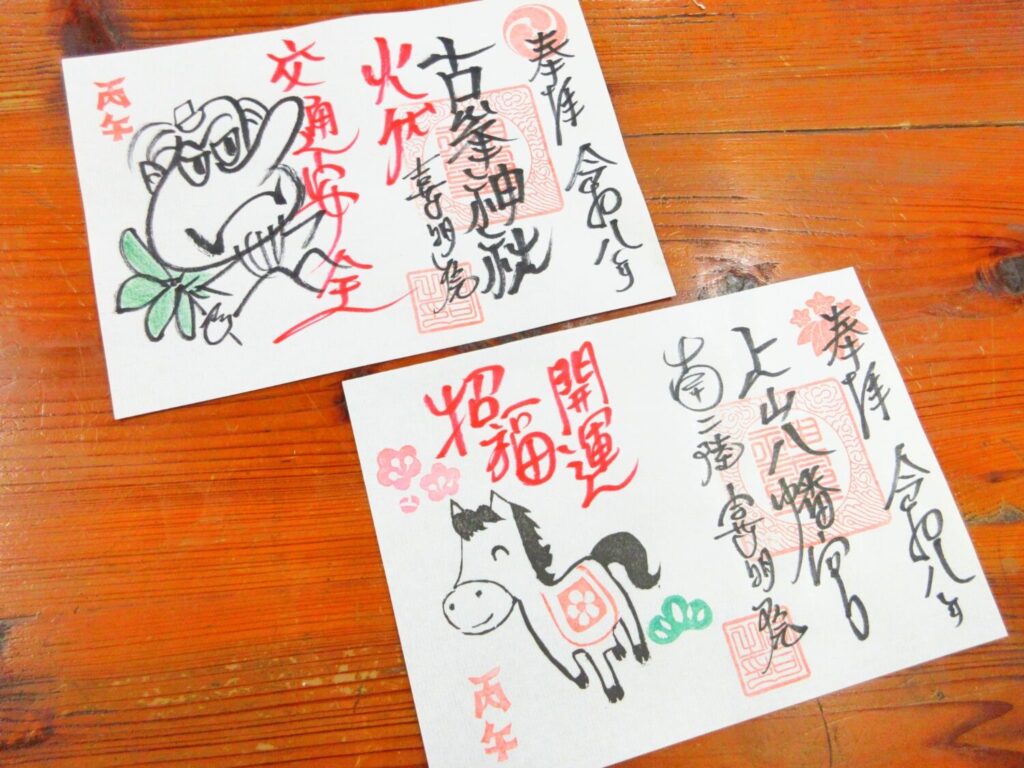 奉拝 令和八年
古峯神社
喜明院
火伏
交通安全
丙午
奉拝 令和八年
上山八幡宮
南三陸 喜明院
開運
招福
丙午